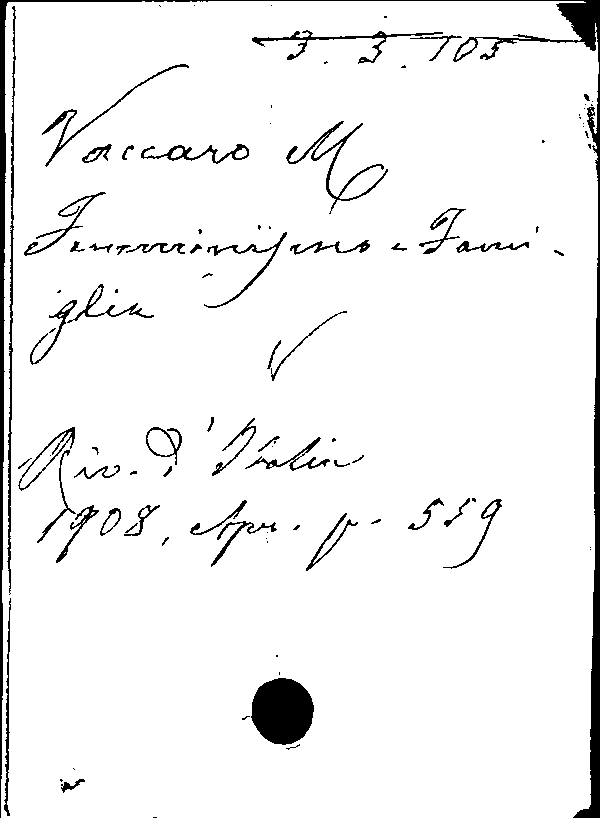 3. 3. 105
Vaccaro M
Femminismo e Fami-
glia
Riv. d'Italia
1908, Apr. p. 559